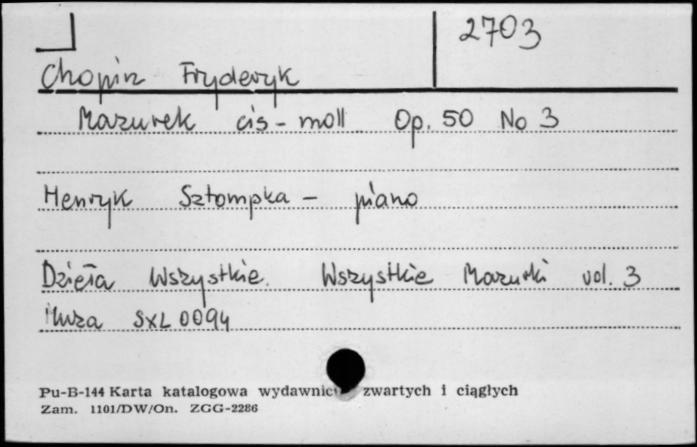 2703
Chopin Fryderyk
Mazurek cis-moll Op. 50 No 3
Henryk Sztompka - piano
Dzieła Wszystkie. Wszystkie Mazurki vol. 3
Muza SXL 0094
Pu-B-144 Karta katalogowa zwartych i ciągłych
Zam. 1101/DW/On. ZGG-2286